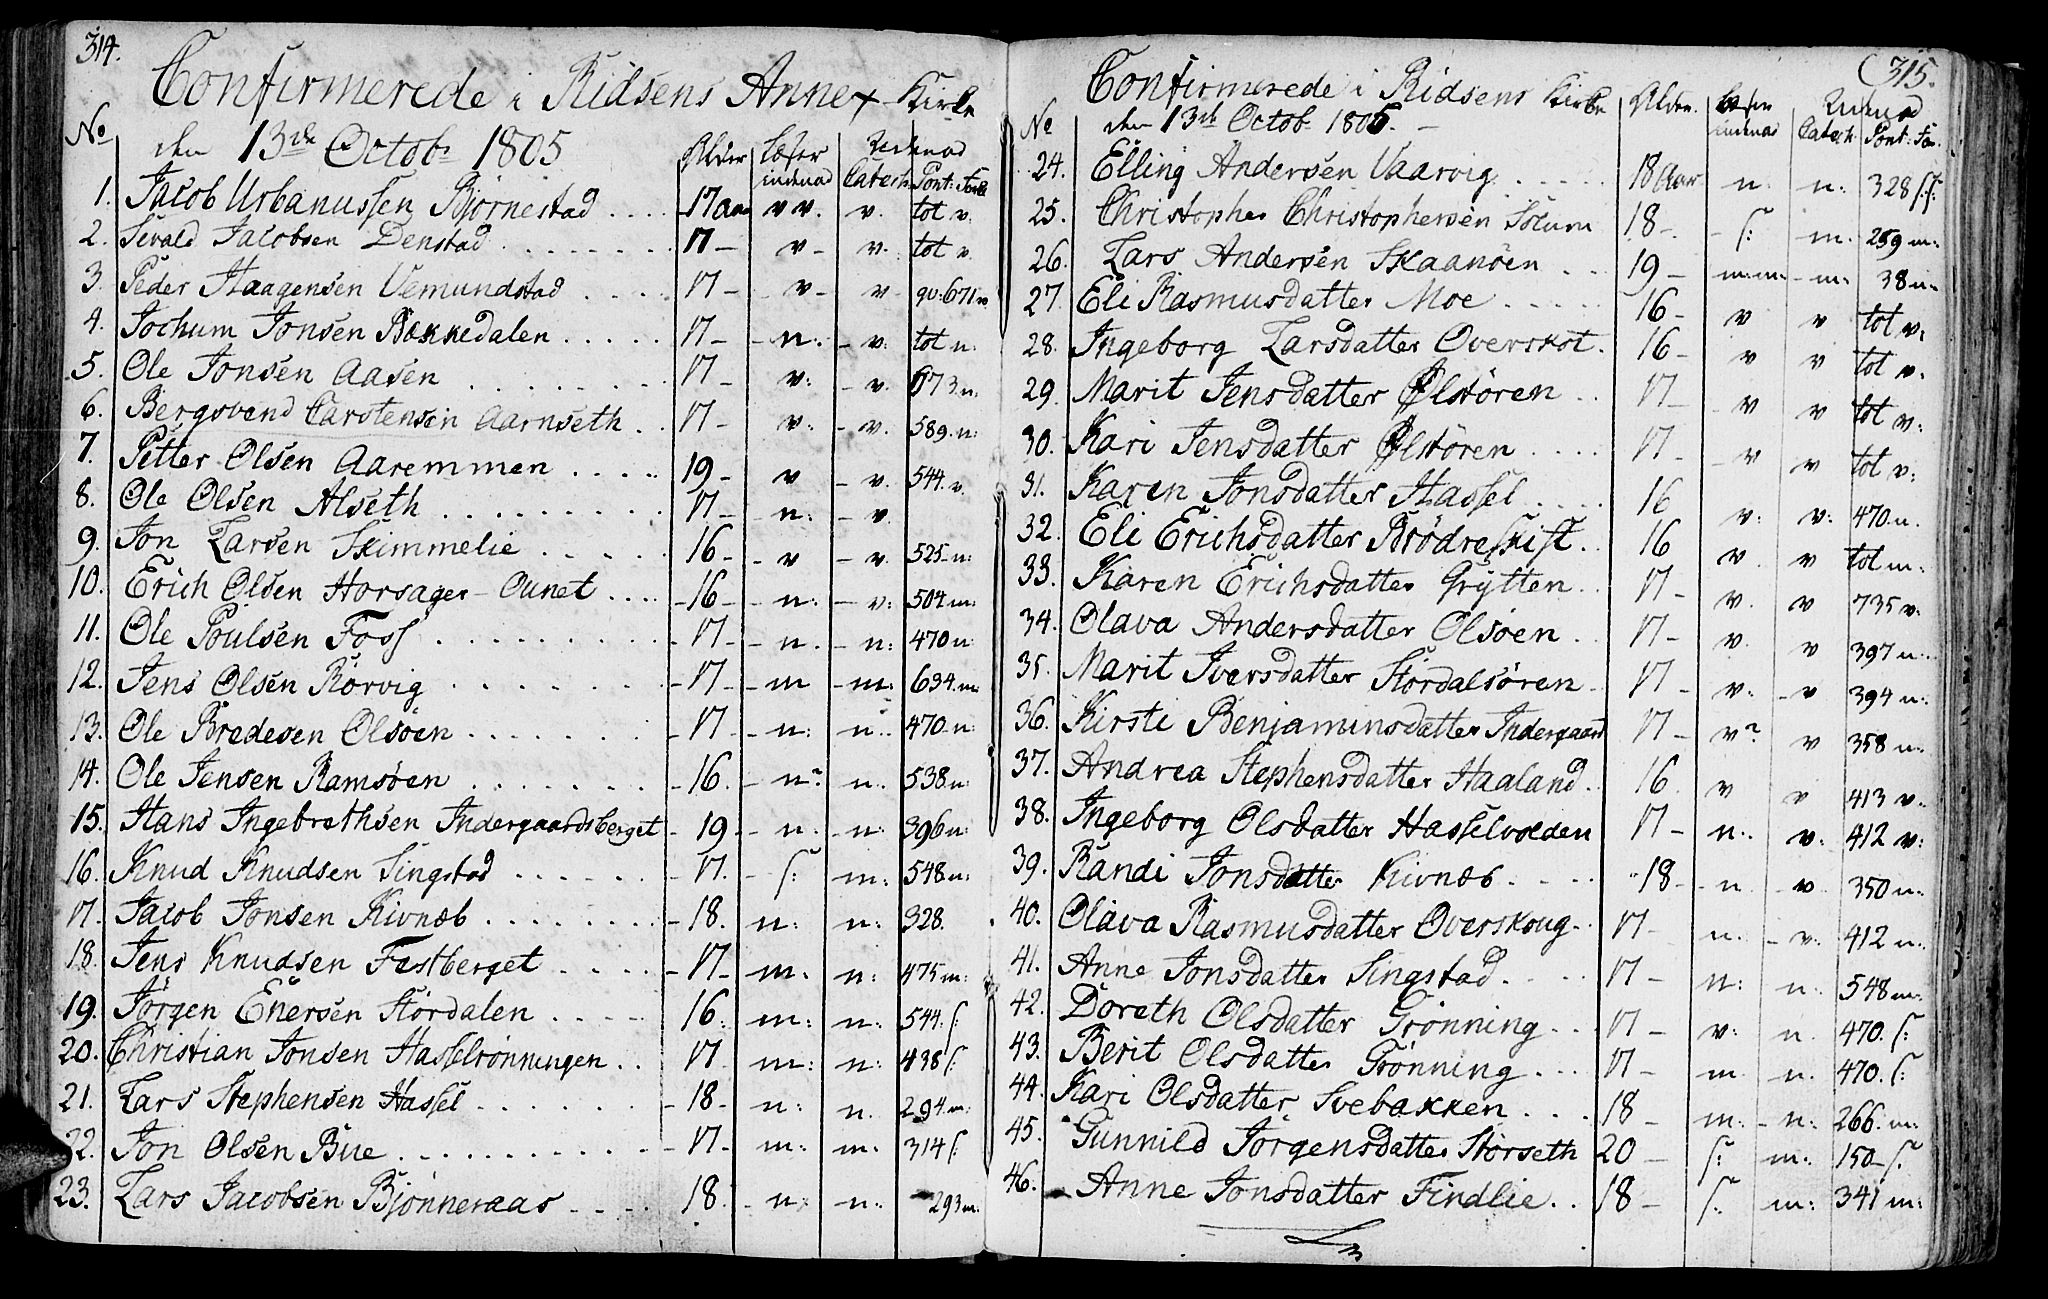 314.
Confirmerede i Ridsens Annex Kirke
den 13de Octobr 1805
No Alder Læser indenad Udenad Catech. Pont: Forkl
1. Jacob Urbanussen Bjørnestad . . . . 17 aar v v. v. tot v.
2. Sivald Jacobsen Denstad . . . . . . . 17 – v – v. tot v.
3. Peder Haagensen Vemundstad . . . . 17 – v – v 671 n
4. Jochum Jonsen Bækkedalen . . . . . 17 – n: – v. tot n.
5. Ole Jonsen Aasen . . . . . . . . 17 – v: – v. 673 n:
6. Bergsvend Carstensen Aarnseth . . 17 – v: – v. 589. n:
7. Petter Olsen Aaremmen . . . . . 19 – v – v. 544. v.
8. Ole Olsen Alseth . . . . . . . . . 17 – n: – v.
9. Jon Larsen Skimmelie . . . . . 16 – v – v. 525 n:
10. Erich Olsen Horsager – Ounet . . . . 16 – n: – v: 504 m:
11. Ole Poulsen Foss . . . . . . . . . 17 – n. – n: 470 n
12. Jens Olsen Rørvig . . . . . . . . 17 – m – m: 634. m
13. Ole Bredesen Olsøen . . . . . . . 17 – n: n: 470 n:
14. Ole Jensen Ramsøen . . . . . . . 16 – n: n: 538 n:
15. Hans Ingebrethsen Indergaardsberget – 19 – n: – n: 396 n:
16. Knud Knudsen Singstad . . . . . . 17. – s: m: 548 n:
17. Jacob Jonsen Kivnæb . . . . . . . . 18. n: n: 328.
18. Jens Knudsen Festberget . . . . 17 – m: n: 475 m:
19. Jørgen Enersen Størdalen . . . . 16. m: n: 544. s:
20. Christian Jonsen Hasselrønningen . . 17 m: n: 438 s:
21. Lars Stephensen Hassel . . . . . . 18 – n: n. 294 m:
22. Jon Olsen Bue . . . . . . . . . . . 17 – m: m: 314 s:
23. Lars Jacobsen Bjønneraas . . . . 18. n: n: 293 m:
315.
Confirmerede i Ridsens Kirke
den 13de Octob: 1805. –
No Alder. Læser indenad Udenad Catech. Pont: For.
24. Elling Andersen Vaarvig . . . . . 18 Aar n: n: 328 s: s:
25. Christopher Christophersen Solum 18 – s: m: 259 m:
26. Lars Andersen Skaanøen . . 19 – m: m: – m: 38 n:
27. Eli Rasmusdatter Moe . . . . . 16 – v v tot v:
28. Ingeborg Larsdatter Overskot . 16 – v v tot v.
29. Marit Jensdatter Ølstøren . . 17 – v v tot v:
30. Kari Jensdatter Ølstøren . . . . 17 – v v tot v:
31. Karen Jonsdatter Hassel . . . . . 16 v: v: 470. n.
32. Eli Erichsdatter Brødreskift . 16 v. v tot m:
33. Karen Erichsdatter Grytten . . 17 – v. v 735 v.
34. Olava Andersdatter Olsøen . 17 – v. v 397 n:
35. Marit Iversdatter Størdalsøren . 17 – v: – v 394 n:
36. Kirsti Benjaminsdatter Indergaard 17 – v? v 358 n:
37. Andrea Stephensdatter Haaland . 16. v v 413 v.
38. Ingeborg Olsdatter Hasselvolden 17 – n: v: 412 v:
39. Randi Jonsdatter Kivnæb . . . . 18 – n v. 350 n:
40. Olava Rasmusdatter Overskoug . 17 – n: – v: 412 n:
41. Anne Jonsdatter Singstad . . . . 17 – n: n: 548 m:
42. Doreth Olsdatter Grønning . . 17 – v: n. 470. s:
43. Berit Olsdatter Grønning . . . 17 – m n. 470. s:
44. Kari Olsdatter Svebakken . . . . 18 – m: – n: 266. m:
45. Gunnild Jørgensdatter Størseth 20 – s: m: 150 – s:
46. Anne Jonsdatter Findlie . . 18 – s: m: 341 m: